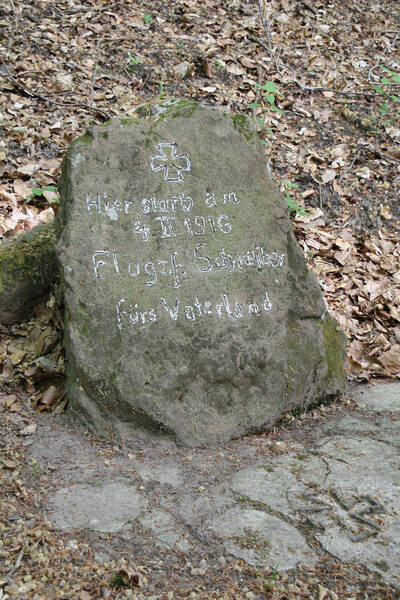 Hier starb am
4 III 1916
Flugzf. Schreiber
fürs Vaterland